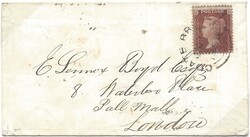 E. Lennox Boyd Esq
8. Waterloo Place
Pall Mall
London